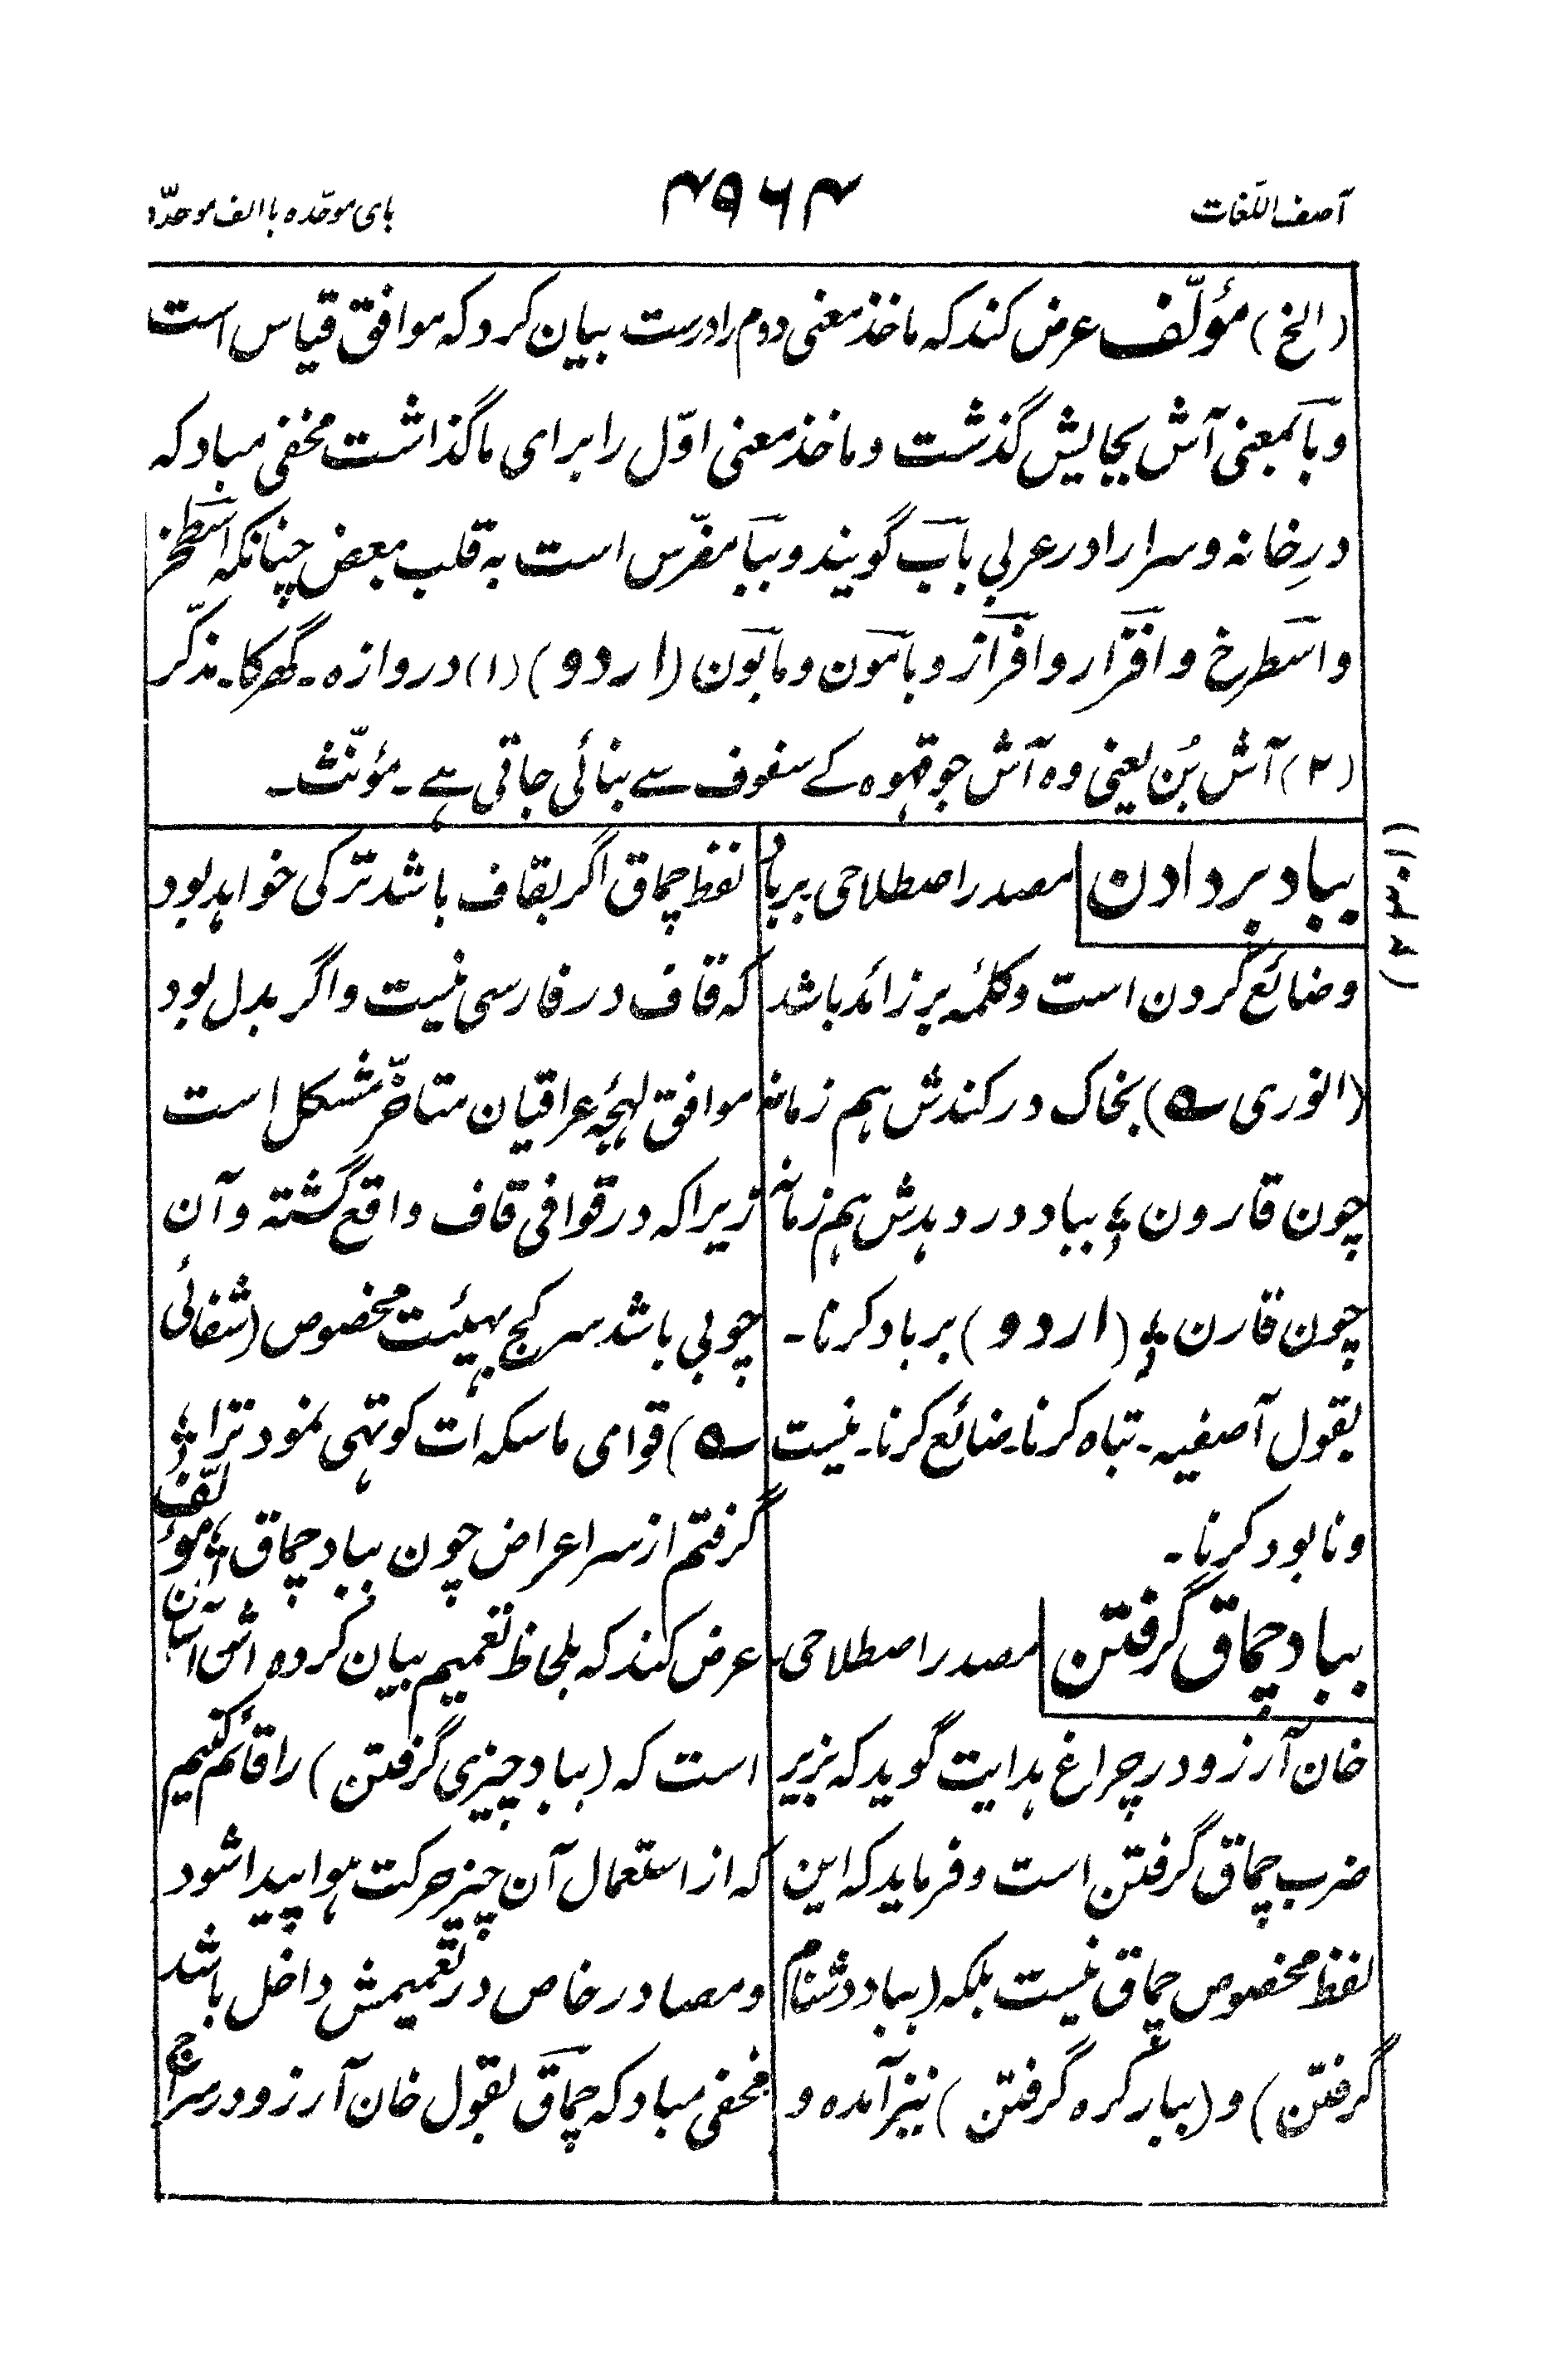 آصف اللّغات
۴۹۶۴
بای موحّده با الف موحدّه
(الخ) مؤلّف عرض کند که ماخذ معنی دوم را درست بیان کرد که موافق قیاس است
و با بمعنی آش بجایش گذشت و ماخذ معنی اوّل را برای ما گذاشت مخفی مباد که
درِ خانه و سرا را در عربی باب گویند و ببا مفرّس است به قلب بعض چنانکه اسطخر
و اسطرخ و افراز و افزار و بامون و مابون (اردو) (۱) دروازہ ۔ گھر کا ۔ مذکّر
(۲) آش بُن یعنی وہ آش جو قہوہ کے سفوف سے بنائی جاتی ہے ۔ مؤنّث ۔
(۲۳۰۱)
بباد بر دادن مصدر اصطلاحی برباد
و ضائع کردن است و کلمۂ بر زائد باشد
(انوری ؎) بخاک درکندش هم زمانه
چون قارون ؛ بباد در دهدش هم زمانه
چون قارن ؛ (اردو) برباد کرنا ۔
بقول آصفیہ ۔ تباہ کرنا ۔ ضائع کرنا ۔ نیست
و نابود کرنا ۔
بباد چماق گرفتن مصدر اصطلاحی
خان آرزو در چراغ هدایت گوید که بزیر
ضرب چماق گرفتن است و فرماید که این
لفظ مخصوص چماق نیست بلکه (بباد دشنام
گرفتن) و (بباد گره گرفتن) نیز آمده و
لفظ چماق اگر بقاف باشد ترکی خواهد بود
که قاف در فارسی نیست و اگر بدل بود
موافق لهجۂ عراقیان متاخّر مشکل است
زیرا که در قوافی قاف واقع گشته و آن
چوبی باشد سر کج بهیئت مخصوص (شفائی
؎) قوای ماسکه ات کوتهی نمود ترا ؛
گرفتم از سر اعراض چون بباد چماق ؛ مؤلّف
عرض کند که بلحاظ تعمیم بیان کرده اش به ازان
است که (بباد چیزی گرفتن) را قائم کنیم
که از استعمال آن چیز حرکت هوا پیدا شود
و مصادر خاص در تعمیمش داخل باشد
مخفی مباد که چماق بقول خان آرزو در سراج